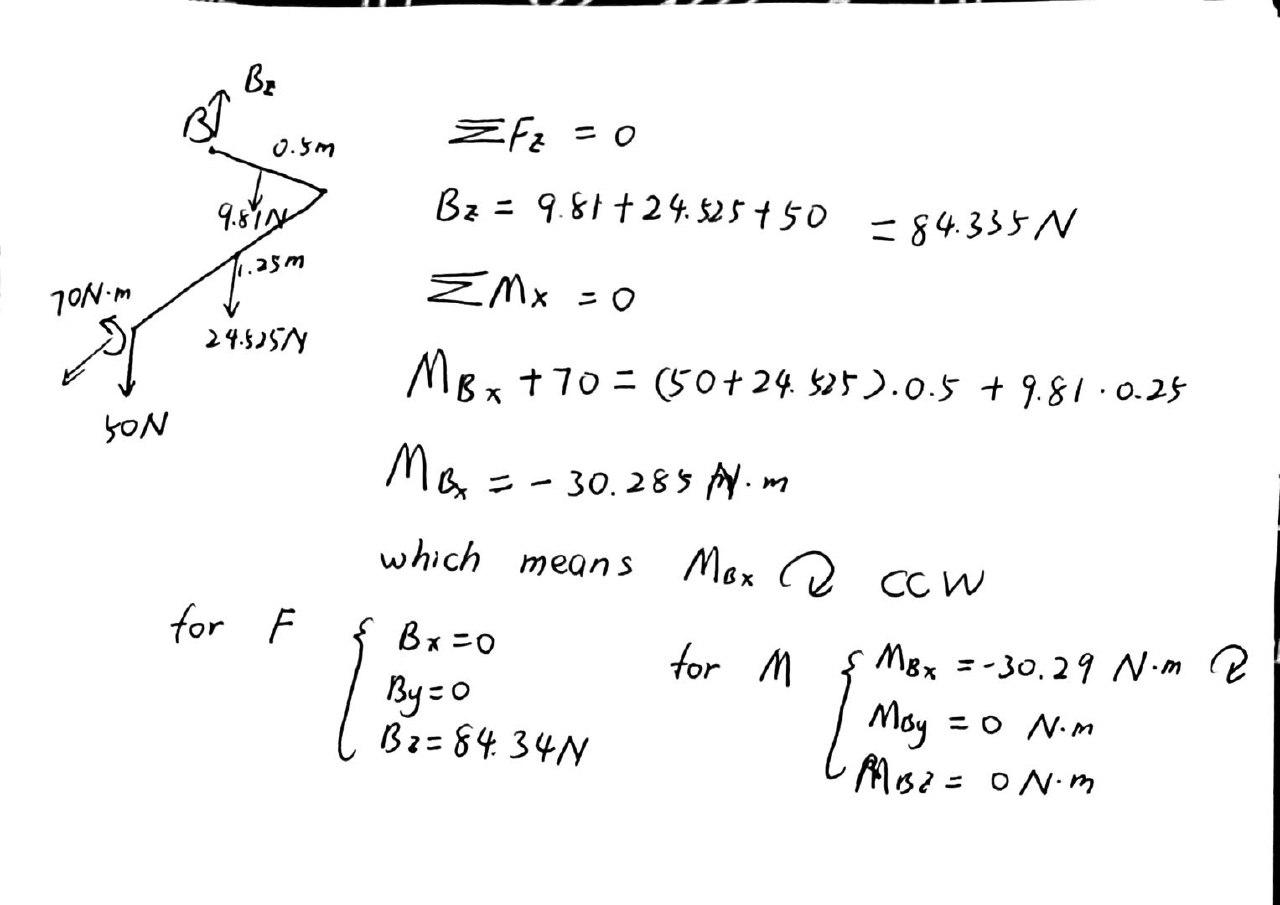 Bz
B
0.5m
9.81N
1.25m
70N·m
24.525N
50N
ΣFz = 0
Bz = 9.81+24.525+50 = 84.335N
ΣMx = 0
MBx +70 = (50+24.525).0.5 + 9.81·0.25
MBx = - 30.285 N·m
which means MBx CCW
for F { Bx=0
By=0
Bz=84.34N
for M { MBx =-30.29 N·m
MBy = 0 N·m
MBz = 0 N·m